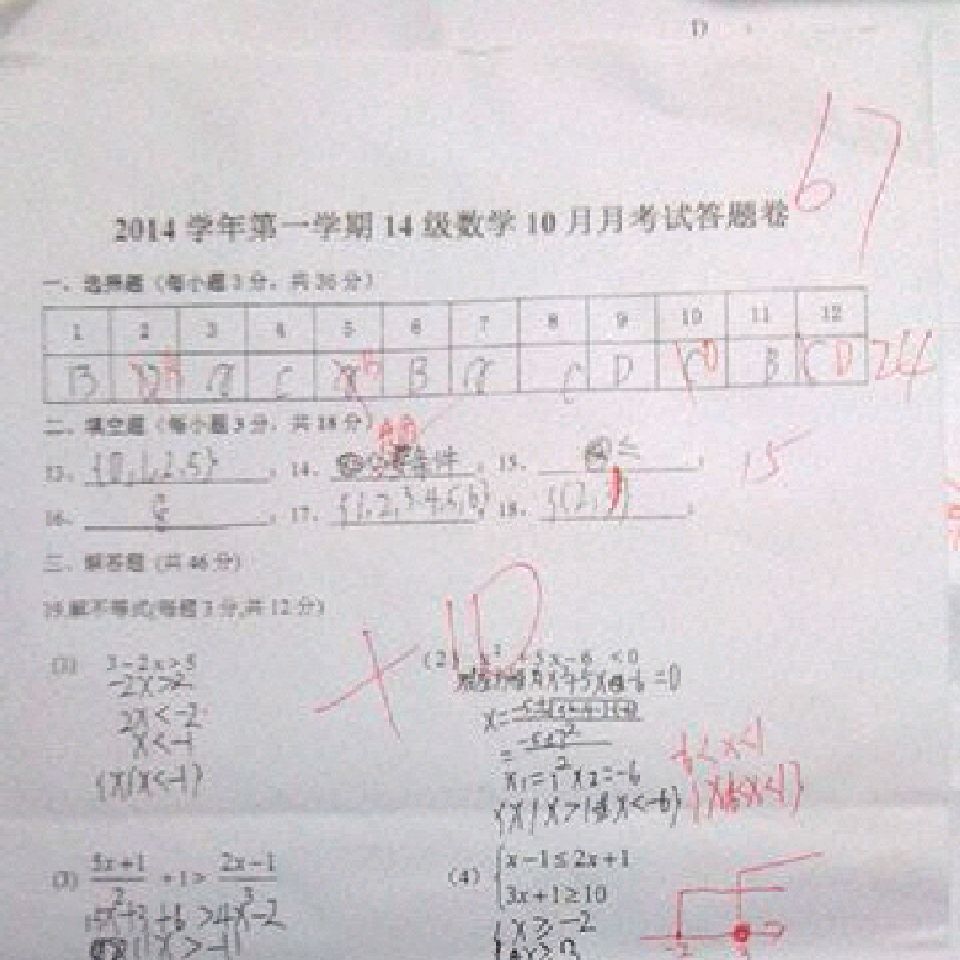 D
67
2014 学年第一学期 14 级数学 10 月月考试答题卷
一、选择题（每小题 3 分，共 36 分）
1 2 3 4 5 6 7 8 9 10 11 12
B C B C D C D B C D 24
二、填空题（每小题 3 分，共 18 分）
13、{0,1,2,5}，14、条件，15、≤； 15
16、，17、{1,2,3,4,5,6}，18、{(2,)}；
三、解答题（共 46 分）
19.解不等式(每题 3 分,共 12 分)
+10
(1) 3-2x>5 (2) x²+5x-6<0
-2x>2 x²+5x-6=0
2x<-2 x=
x<-1 =
x₁=1 x₂=-6 -6<x<1
{x|x<-1} {x|x>1或x<-6} {x|-6<x<1}
(3) (5x+1)/2+1>(2x-1)/3 (4) {x-1≤2x+1
3x+1≥10
15x+3+6>4x-2 {x≥-2
{x|x>-1} x≥3 -2 3